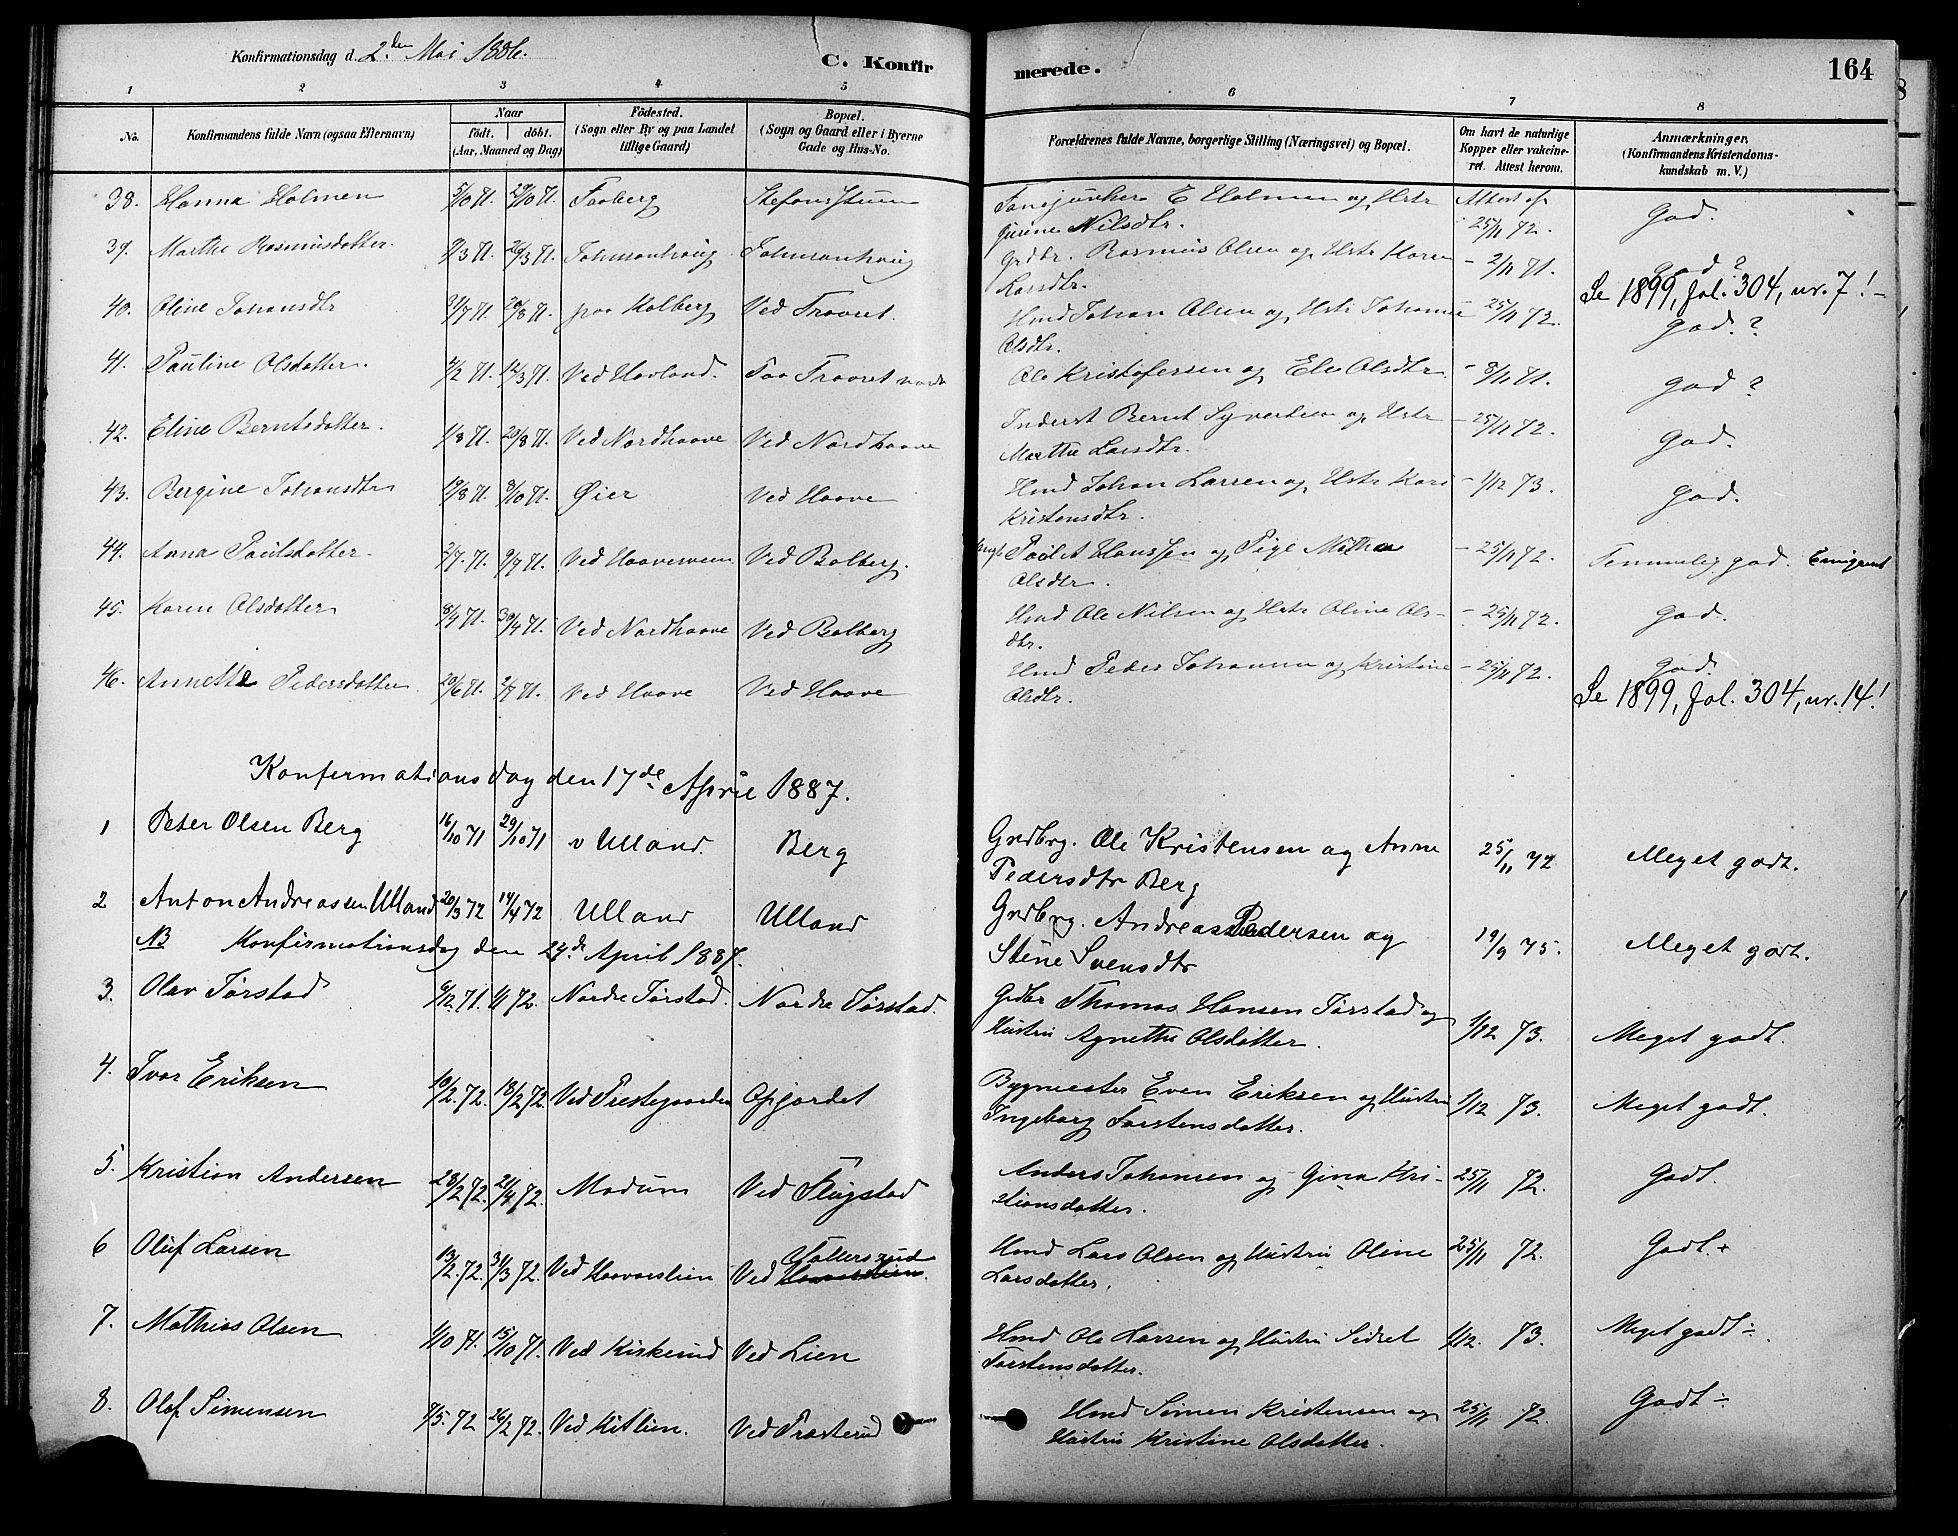 Konfirmationsdag d. 2den Mai 1886.
C. Konfirmerede.
164
1 2 3 4 5 6 7 8
No. Konfirmandens fulde Navn (ogsaa Efternavn) Naar födt. döbt. (Aar, Maaned og Dag) Födested. (Sogn eller By og paa Landet tillige Gaard) Bopæl. (Sogn og Gaard eller i Byerne Gade og Hus-No. Forældrenes fulde Navne, borgerlige Stilling (Næringsvei) og Bopæl. Om havt de naturlige Kopper eller vakcineret. Attest herom. Anmærkninger, (Konfirmandens Kristendomskundskab m. V.)
38. Hanna Holmen 5/10 71. 29/10 71. Faaberg E Holmen og Hstr Attest af
Nilsdtr. 25/11 72. God.
39. Marthe Rasmusdatter. 9/3 71. 26/3 71. Johnsonhaug Johnsonhaug Grdbr. Rasmus Olsen og Hstr Karen - 2/11 71. god?
Larsdtr.
Se 1899, fol. 304, nr. 7! -
40. Oline Johansdtr 9/7 71. 20/8 71. paa Kolberg Ved Fravret. Hmd Johan Olsen og Hstr Johanne - 25/11 72. god.?
Olsdtr.
41. Pauline Olsdatter. 4/2 71. 12/3 71. Ved Hovland. Paa Fravret Ole Kristofersen og Eli Olsdtr. - 8/11 71. god?
42. Eline Berntsdatter. 1/8 71. 20/8 71. Ved Nordhaave Ved Nordhaave Inderst Bernt Syvertsen og Hstr - 25/11 72. God.
Marthe Larsdtr.
43. Bergine Johansdtr 19/8 71. 8/10 71. Øier Ved Haave Hmd Johan Larsen og Hstr Kari - 1/12 73. God.
Kristensdtr.
44. Anna Paulsdatter. 2/7 71. 9/7 71. Ved Haaveveen Ved Bolberg. Ungk Paul Hanssen og Pige Mathea - 25/11 72. Temmelig god. Emigrant
Olsdtr.
45. Karen Olsdatter 8/4 71. 30/4 71. Ved Nordhaave Ved Bolberg Hmd Ole Nilsen og Hstr Oline Ols- - 25/11 72. God.
dtr.
46. Annette Pedersdatter 20/6 71. 2/7 71. Ved Haave Ved Haave Hmd Peder Johannsen og Kristine - 25/11 72. God.
Olsdtr.
Se 1899, fol. 304, nr. 14!
Konfermationsdag den 17de April 1887.
1 Peter Olsen Berg 16/10 71 29/10 71 v Ulland. Berg Grdbrg. Ole Kristensen og Anne 25/11 72 Meget godt.
Pedersdtr Berg
2 Anton Andreassen Ulland 20/3 72 14/4 72 Ulland Ulland Grdbrg. Andreas Pedersen og 19/9 75. Meget godt.
Stine Svensdtr
NB Konfirmationsdag den 24de April 1887.
3. Olav Tørstad 6/12 71. 1/1 72. Nordre Tørstad. Nordre Tørstad. Grdbr Thomas Hansen Tørstad og 1/12 73. Meget godt.
Hustru Agnethe Olsdatter.
4. Ivar Eriksen 10/2 72. 18/2 72. Ved Prestegaarden Opjordet Bygmester Even Eriksen og Hustru 1/12 73. Meget godt.
Ingeborg Torstensdatter.
5. Kristian Andersen 28/2 72. 21/4 72. Modum Ved Flugstad Anders Johansen og Gina Kri- 25/11 72. Godt.
stiansdatter.
6 Oluf Larsen 13/2 72. 31/3 72. Ved Haavarslien Ved Haavarslien. Hmd Lars Olsen og Hustru Oline 25/11 72. Godt.+
Larsdatter.
7. Mathias Olsen 1/10 71. 15/10 71. Ved Kirkerud Ved Lien Hmd Ole Larsen og Hustru Sidsel 1/12. 73. Meget godt ÷.
Torstensdatter.
8. Olaf Simensen 9/5. 72 26/2 72. Ved Kitlien. Ved Præsterud Hmd Simen Kristensen og 25/11 72. Godt ÷
Hustru Kristine Olsdatter.